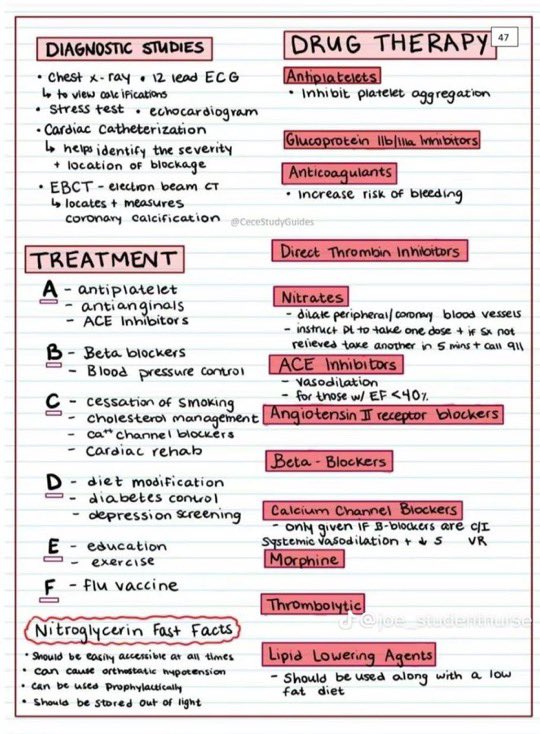 DIAGNOSTIC STUDIES
• Chest x-ray • 12 lead ECG
↳ to view calcifications
• Stress test • echocardiogram
• Cardiac Catheterization
↳ helps identify the severity
+ location of blockage
• EBCT - electron beam CT
↳ locates + measures
coronary calcification
@CeceStudyGuides
TREATMENT
A - antiplatelet
- antianginals
- ACE Inhibitors
B - Beta blockers
- Blood pressure control
C - cessation of smoking
- cholesterol management
- ca⁺⁺ channel blockers
- cardiac rehab
D - diet modification
- diabetes control
- depression screening
E - education
- exercise
F - flu vaccine
Nitroglycerin Fast Facts
• Should be easily accessible at all times
• can cause orthostatic hypotension
• can be used prophylactically
• Should be stored out of light
DRUG THERAPY
47
Antiplatelets
• Inhibit platelet aggregation
Glucoprotein IIb/IIIa Inhibitors
Anticoagulants
• Increase risk of bleeding
Direct Thrombin Inhibitors
Nitrates
- dilate peripheral/coronary blood vessels
- instruct pt to take one dose + if sx not
relieved take another in 5 mins + call 911
ACE Inhibitors
- vasodilation
- for those w/ EF <40%
Angiotensin II receptor blockers
Beta-Blockers
Calcium Channel Blockers
- only given if B-blockers are c/I
Systemic vasodilation + ↓ S VR
Morphine
Thrombolytic
@joe_studentnurse
Lipid Lowering Agents
- Should be used along with a low
fat diet